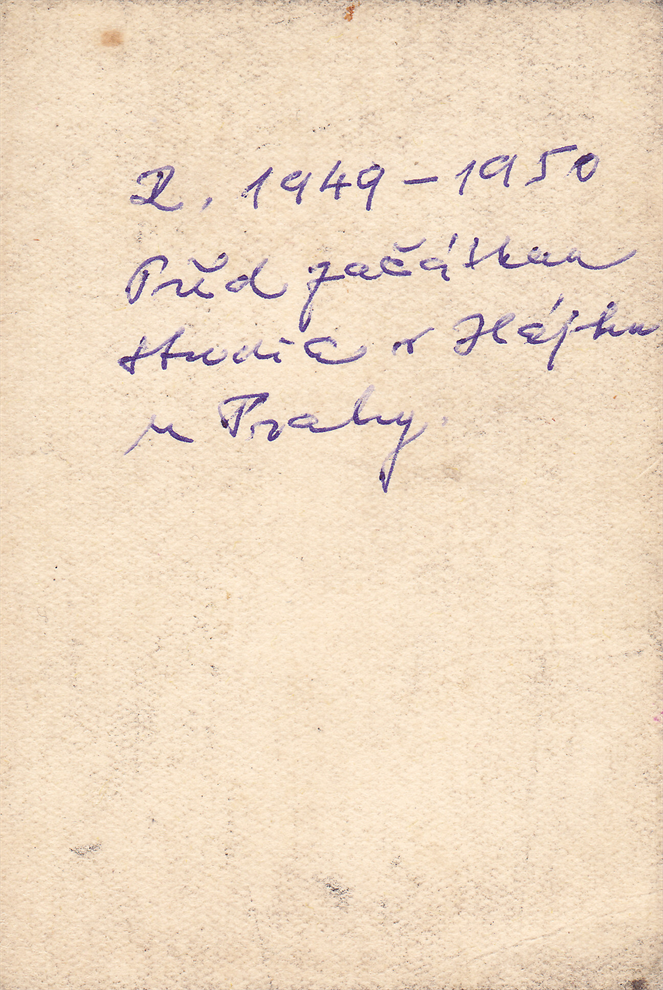 R. 1949 - 1950
Před začátkem
studia v Hájku
u Prahy.